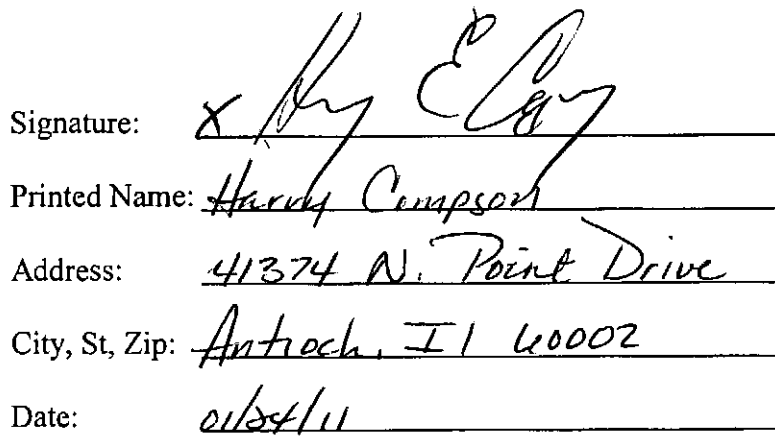 Signature: X
Printed Name: Harry Compson
Address: 41374 N. Point Drive
City, St, Zip: Antioch, Il 60002
Date: 01/24/11